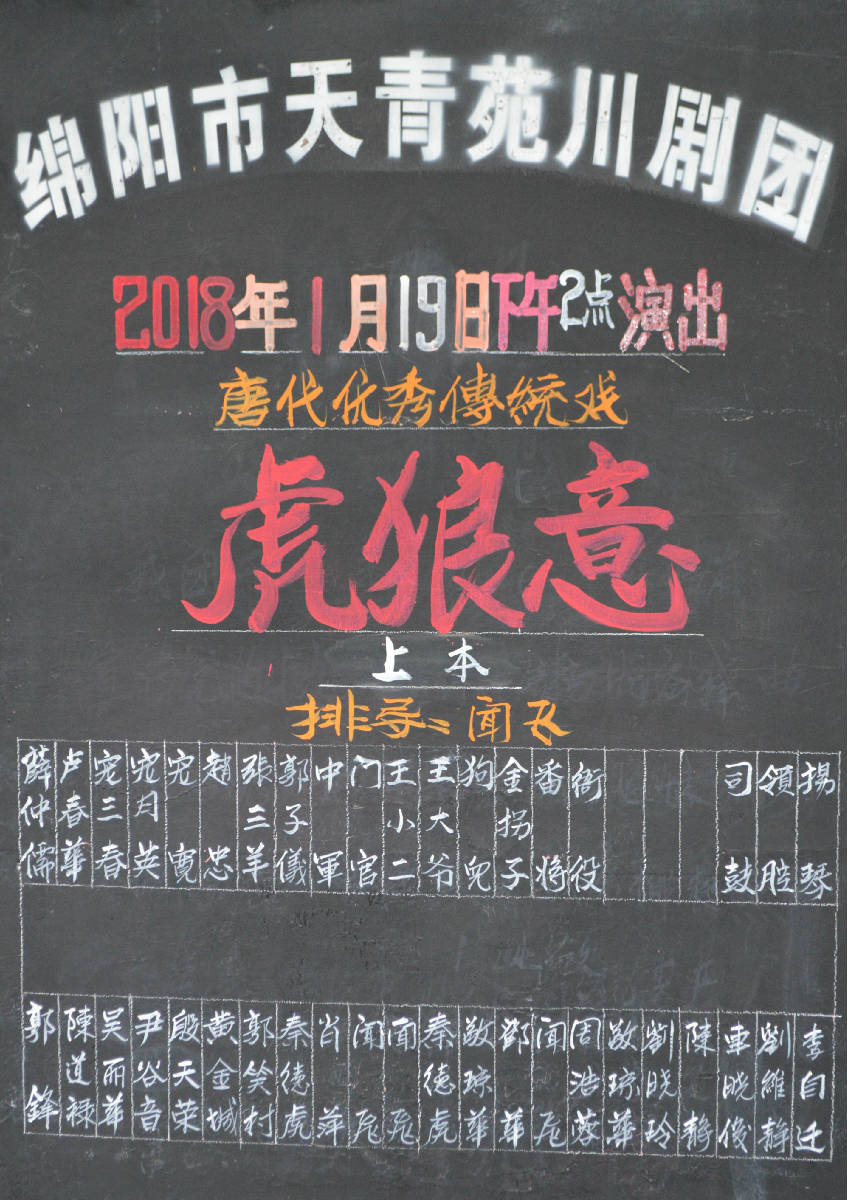 绵阳市天青苑川剧团
2018年1月19日下午2点演出
唐代优秀傳統戏
虎狼意
上本
排导：闻飞
薛仲儒
卢春華
宼三春
宼月英
宼寛
趙忠
張三羊
郭子儀
中軍
门官
王小二
王大爷
狗兒
金拐子
番将
衙役
司鼓
領腔
拐琴
郭鋒
陳道禄
吴丽華
尹谷音
殷天荣
黄金城
郭笑村
秦德虎
肖萍
闻飛
闻飛
秦德虎
敬琼華
鄧華
闻飛
周浩蓉
敬琼華
劉晓玲
陳静
車晓俊
劉維静
李自迁